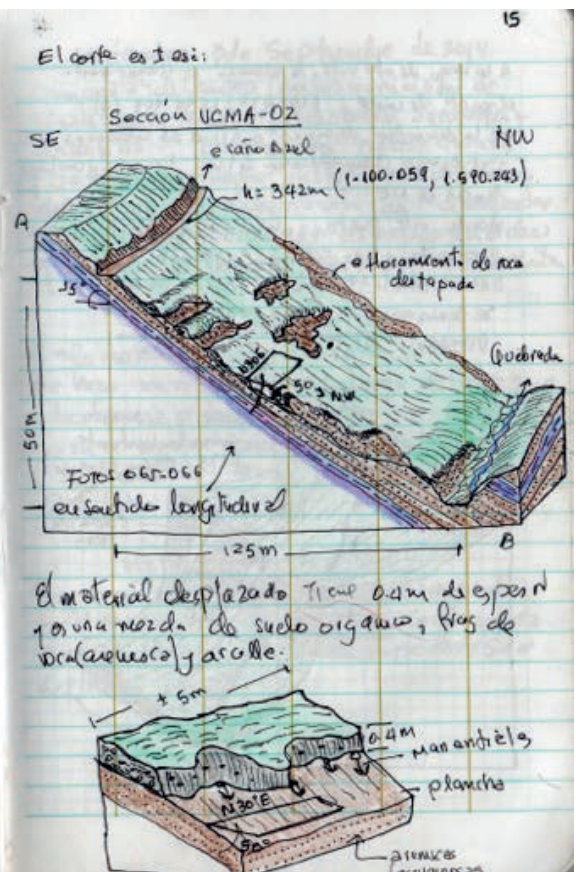 15
El corte es ± así:
Sección UCMA-02
SE
NW
a caño Azul
h= 342m (1.100.059, 1.590.243)
A
afloramiento de roca
destapada
15°
Quebrada
50m
50° NW
FOTOS 065-066
en sentido longitudinal
125m
B
El material desplazado tiene 0.4m de espesor
y es una mezcla de suelo orgánico, frag de
roca(arenisca) y arcilla.
± 5m
0.4m
manantiales
plancha
N30°E
50°
areniscas